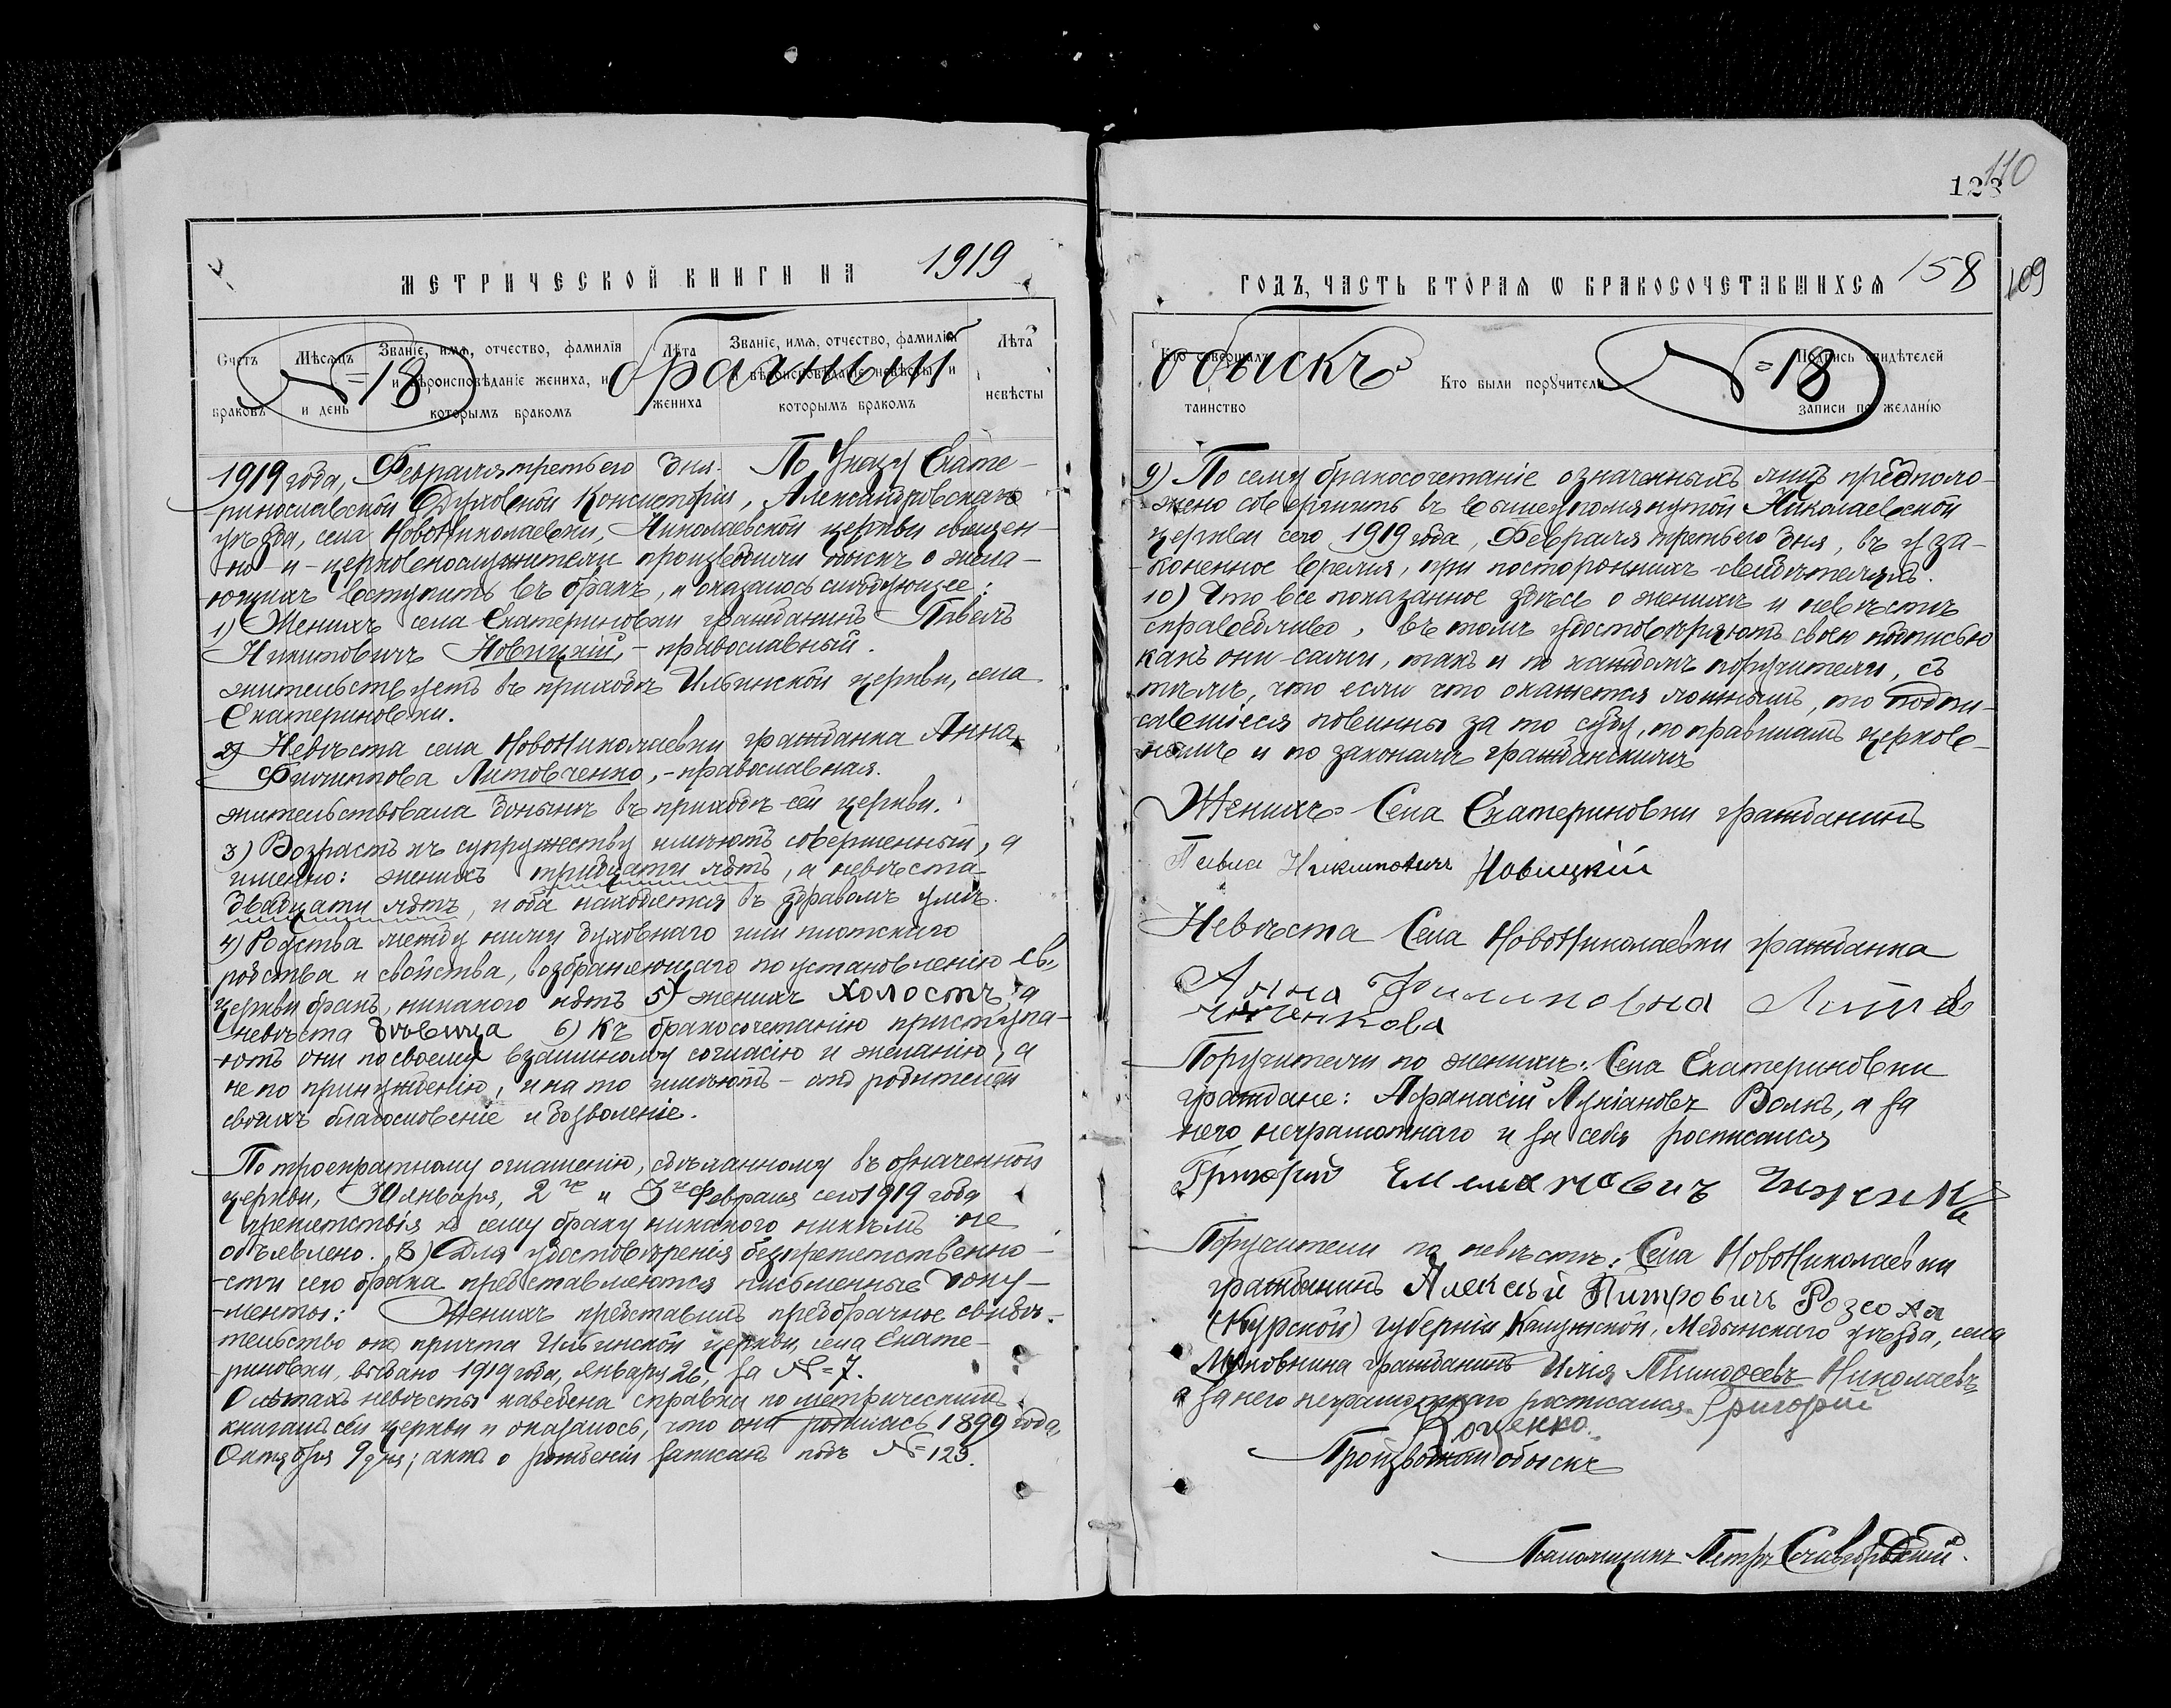 110
123
МЕТРИЧЕСКОЙ КНИГИ НА 1919
ГОДЪ, ЧАСТЬ ВТОРАЯ Ѡ БРАКОСОЧЕТАВШИХСЯ 158
109
Счетъ браковъ
Мѣсяцъ и день
Званіе, имя, отчество, фамилія и вѣроисповѣданіе жениха, и которымъ бракомъ
Лѣта жениха
Званіе, имя, отчество, фамилія и вѣроисповѣданіе невѣсты, и которымъ бракомъ
Лѣта невѣсты
Кто совершалъ таинство
Кто были поручители
Подпись свидѣтелей записи по желанію
№ 18 брачный обыскъ № 18
1919 года, Февраля третьего дня. По Указу Екате-
ринославской Духовной Консисторіи, Александровскаго
уѣзда, села НовоНиколаевки, Николаевской церкви священ-
но- и -церковнослужители произведили обыскъ о жела-
ющихъ вступить въ бракъ, и оказалось слѣдующее:
1) Женихъ села Екатериновки гражданинъ Павелъ
Никитовичъ Новицкій, - православный.
жительствуетъ въ приходѣ Ильинской церкви, села
Екатериновки.
2) Невѣста села НовоНиколаевки гражданка Анна
Филиппова Литовченко, - православная.
жительствовала донынѣ въ приходѣ сей церкви.
3) Возрастъ къ супружеству имѣютъ совершенный, а
именно: женихъ тридцати лѣтъ, а невѣста
двадцати лѣтъ, и оба находятся въ здравомъ умѣ.
4) Родства между ними духовнаго или плотскаго
родства и свойства, возбраняющаго по установленію св.
церкви бракъ, никакого нѣтъ 5) женихъ холостъ, а
невѣста дѣвица 6) Къ бракосочетанію приступа-
ютъ они по своему взаимному согласію и желанію, а
не по принужденію, и на то имѣютъ - отъ родителей
своихъ благословеніе и дозволеніе.
По троекратному оглашенію, сдѣланному въ означенной
церкви, 30 января, 2го и 3го Февраля сего 1919 года
препятствія къ сему браку никакого никѣмъ не
объявлено. 8) Для удостовѣренія безпрепятственно-
сти сего брака представляются письменные доку-
менты: Женихъ представилъ предбрачное свидѣ-
тельство отъ причта Ильинской церкви, села Екате-
риновки, выдано 1919 года, января 26, за № 7.
О лѣтахъ невѣсты наведена справка по метрическимъ
книгамъ сей церкви и оказалось, что она родилась 1899 года,
Октября 9 дня; актъ о рожденіи записанъ подъ № 123.
9) По сему бракосочетаніе означенныхъ лицъ предполо-
жено совершить въ вышеупомянутой Николаевской
церкви сего 1919 года, Февраля третьего дня, въ уза-
коненное время, при постороннихъ свидѣтеляхъ.
10) Что все показанное здѣсь о женихѣ и невѣстѣ
справедливо, въ томъ удостовѣряютъ своею подписью
какъ они сами, такъ и по каждомъ поручители, съ
тѣмъ, что если что окажется ложнымъ, то подпи-
савшіеся повинны за то суду, по правиламъ церков-
нымъ и по законамъ гражданскимъ
Женихъ Села Екатериновки гражданинъ
Павел Никитовичъ Новицкій
Невѣста Села НовоНиколаевки гражданка
Анна Филиповна Литов
ченкова
Поручители по женихѣ: Села Екатериновки
граждане: Афанасій Лукіановъ Волкъ, а за
него неграмотнаго и за себя росписался
Григорій
Поручители по невѣстѣ: Села НовоНиколаевки
гражданинъ Алексѣй Питровичъ Розсоха
(Курской) губерніи Калужской, Медынскаго уѣзда, села
гражданинъ Илія Тимофеевъ Николаевъ
а за него неграмотнаго росписался Григорій
Доценко.
Производили обыскъ
Псаломщикъ Петръ